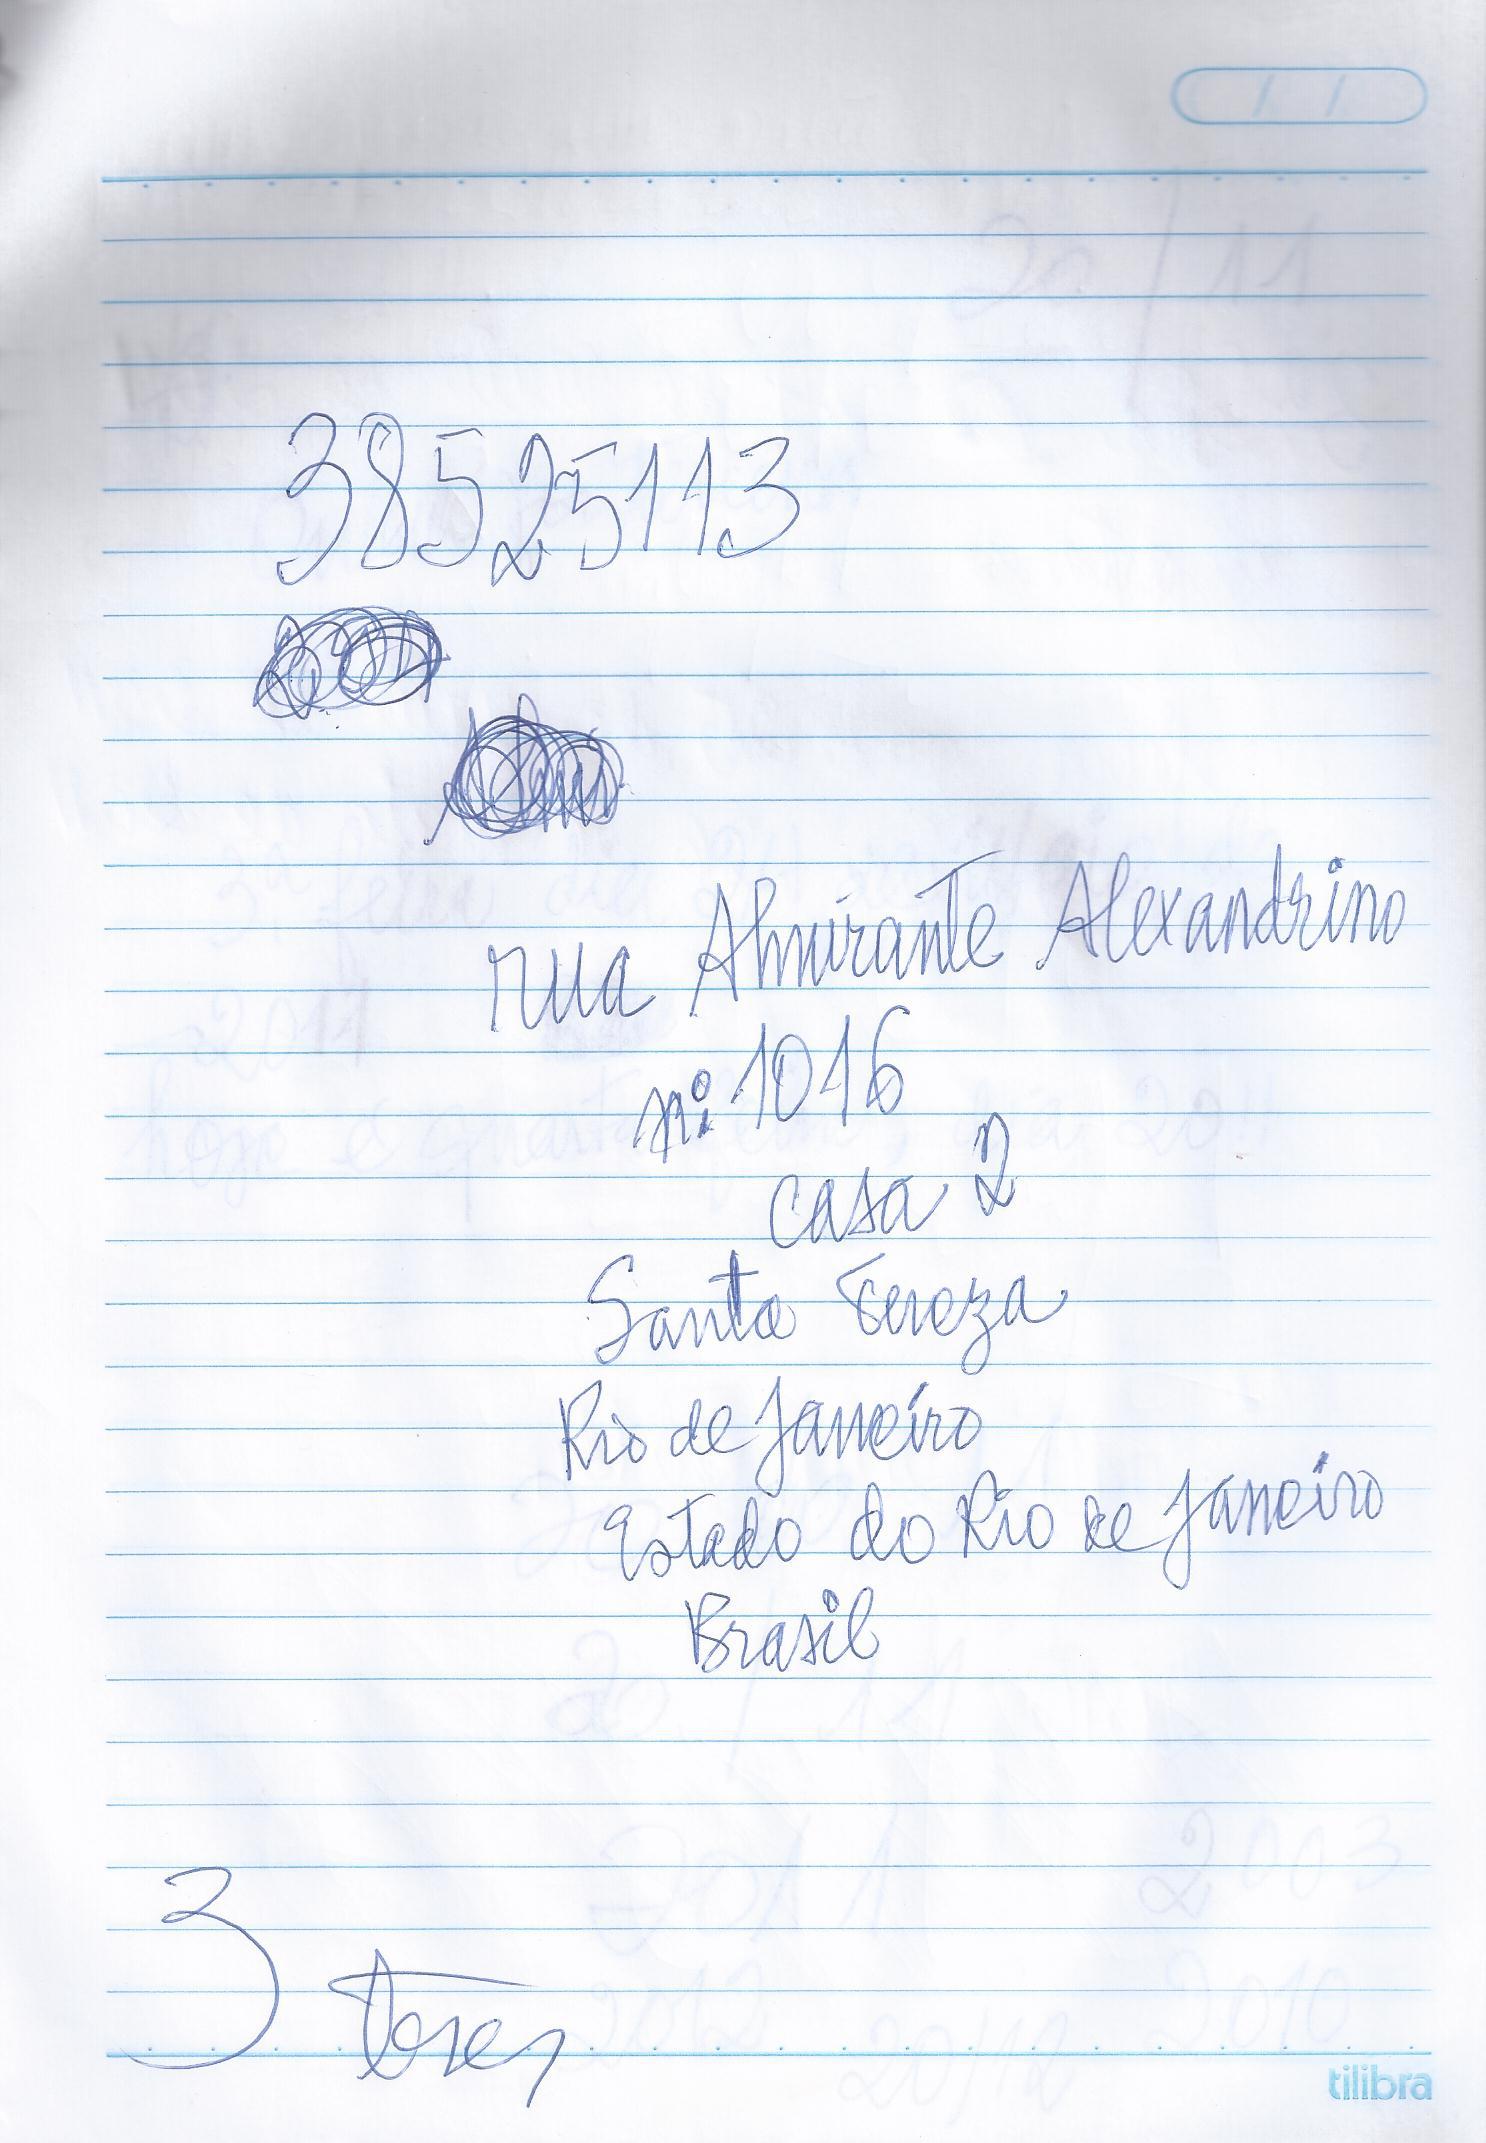 38525113
rua Almirante Alexandrino
nº: 1016
casa 2
Santa Tereza
Rio de Janeiro
Estado do Rio de Janeiro
Brasil
3
tilibra